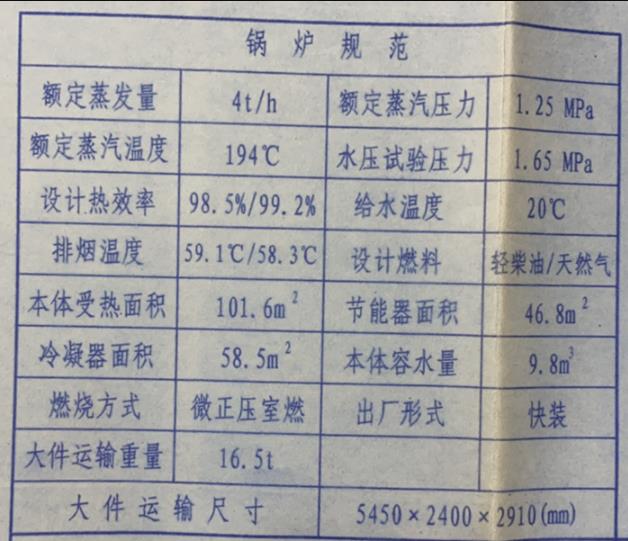 锅炉规范
额定蒸发量 4t/h 额定蒸汽压力 1.25 MPa
额定蒸汽温度 194℃ 水压试验压力 1.65 MPa
设计热效率 98.5%/99.2% 给水温度 20℃
排烟温度 59.1℃/58.3℃ 设计燃料 轻柴油/天然气
本体受热面积 101.6m² 节能器面积 46.8m²
冷凝器面积 58.5m² 本体容水量 9.8m³
燃烧方式 微正压室燃 出厂形式 快装
大件运输重量 16.5t
大件运输尺寸 5450×2400×2910(mm)